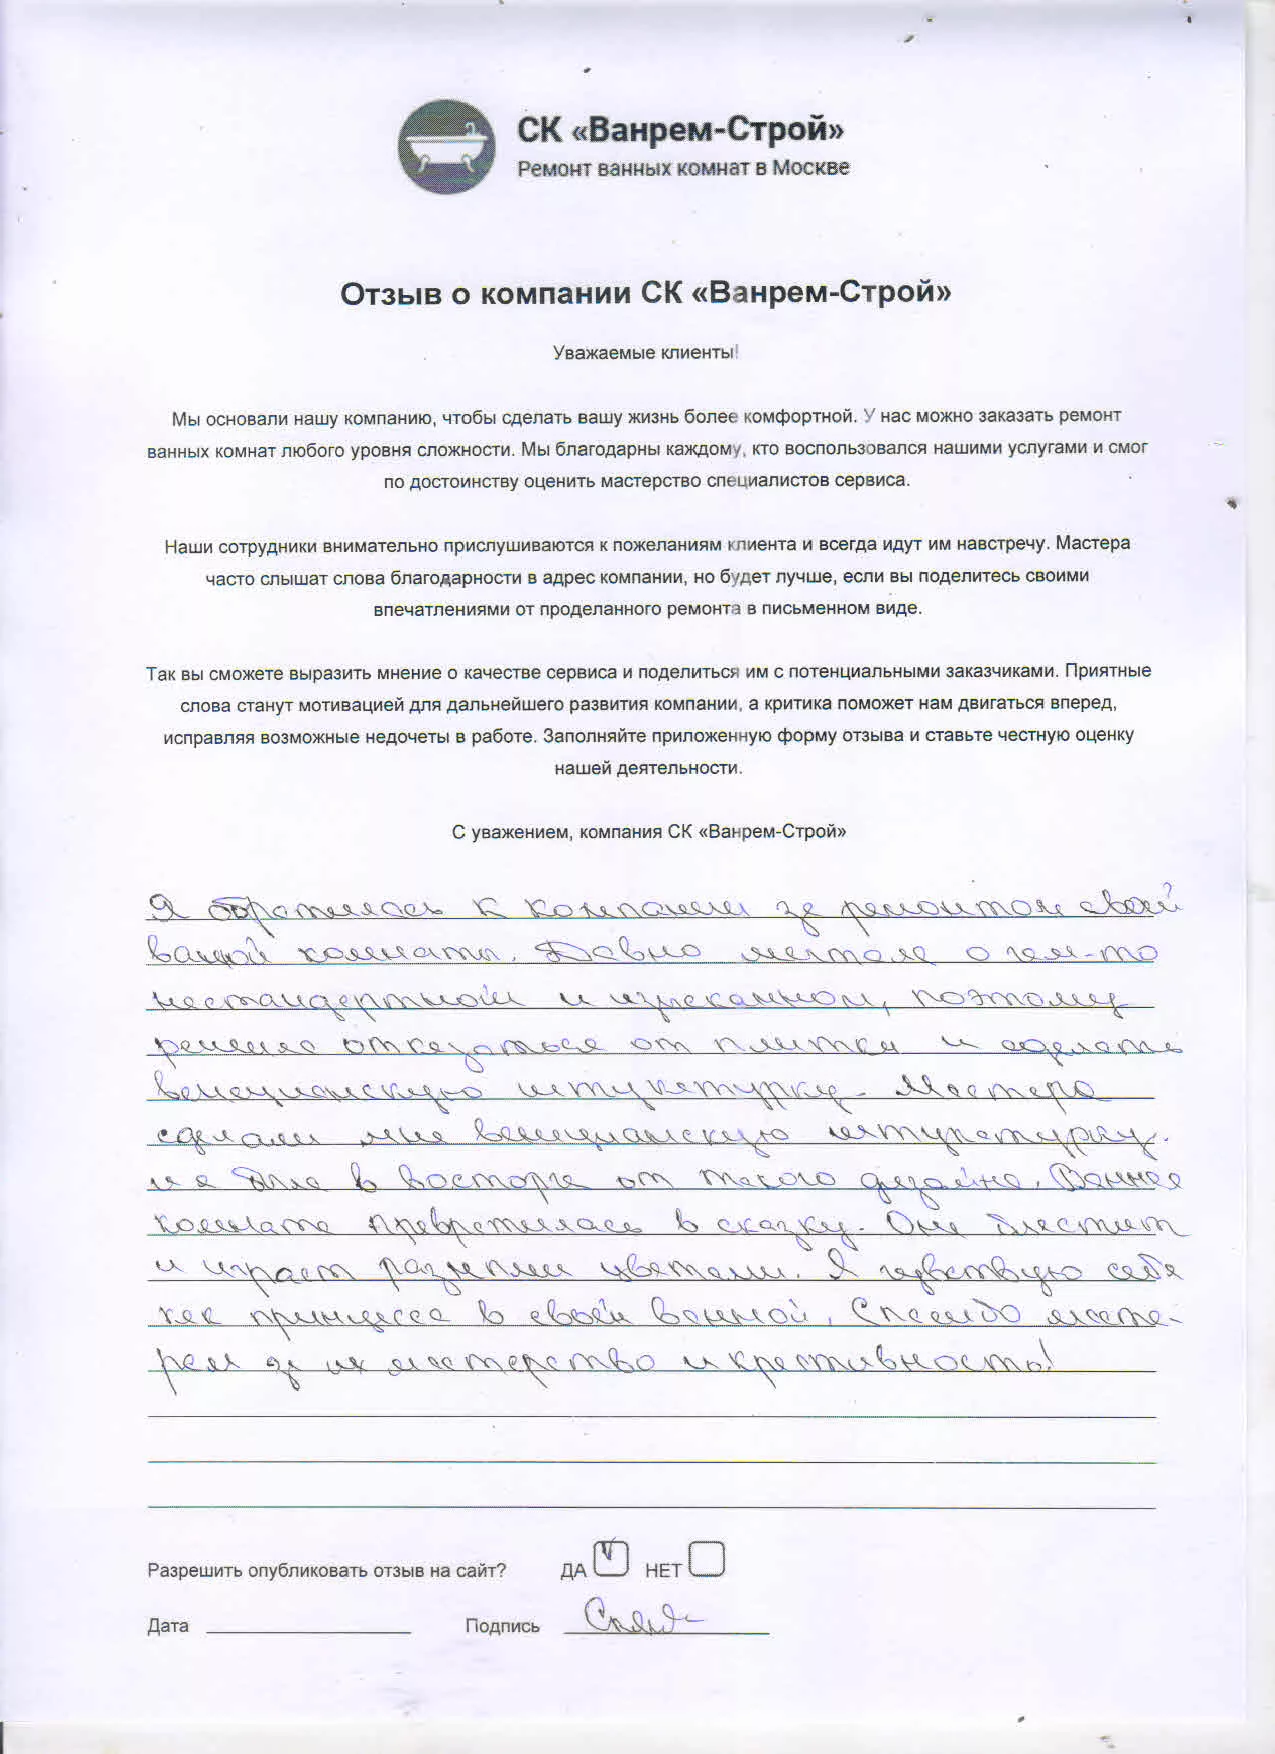 СК «Ванрем-Строй»
Ремонт ванных комнат в Москве
Отзыв о компании СК «Ванрем-Строй»
Уважаемые клиенты!
Мы основали нашу компанию, чтобы сделать вашу жизнь более комфортной. У нас можно заказать ремонт
ванных комнат любого уровня сложности. Мы благодарны каждому, кто воспользовался нашими услугами и смог
по достоинству оценить мастерство специалистов сервиса.
Наши сотрудники внимательно прислушиваются к пожеланиям клиента и всегда идут им навстречу. Мастера
часто слышат слова благодарности в адрес компании, но будет лучше, если вы поделитесь своими
впечатлениями от проделанного ремонта в письменном виде.
Так вы сможете выразить мнение о качестве сервиса и поделиться им с потенциальными заказчиками. Приятные
слова станут мотивацией для дальнейшего развития компании, а критика поможет нам двигаться вперед,
исправляя возможные недочеты в работе. Заполняйте приложенную форму отзыва и ставьте честную оценку
нашей деятельности.
С уважением, компания СК «Ванрем-Строй»
Я обратилась к компании за ремонтом своей
ванной комнаты. Давно мечтала о чем-то
нестандартном и изысканном, поэтому
решила отказаться от плитки и сделать
венецианскую штукатурку. Мастера
сделали мне венецианскую штукатурку.
и я была в восторге от такого дизайна. Ванная
комната превратилась в сказку. Она блестит
и играет разными цветами. Я чувствую себя
как принцесса в своей ванной. Спасибо масте-
рам за их мастерство и креативность!
Разрешить опубликовать отзыв на сайт? ДА НЕТ
Дата Подпись